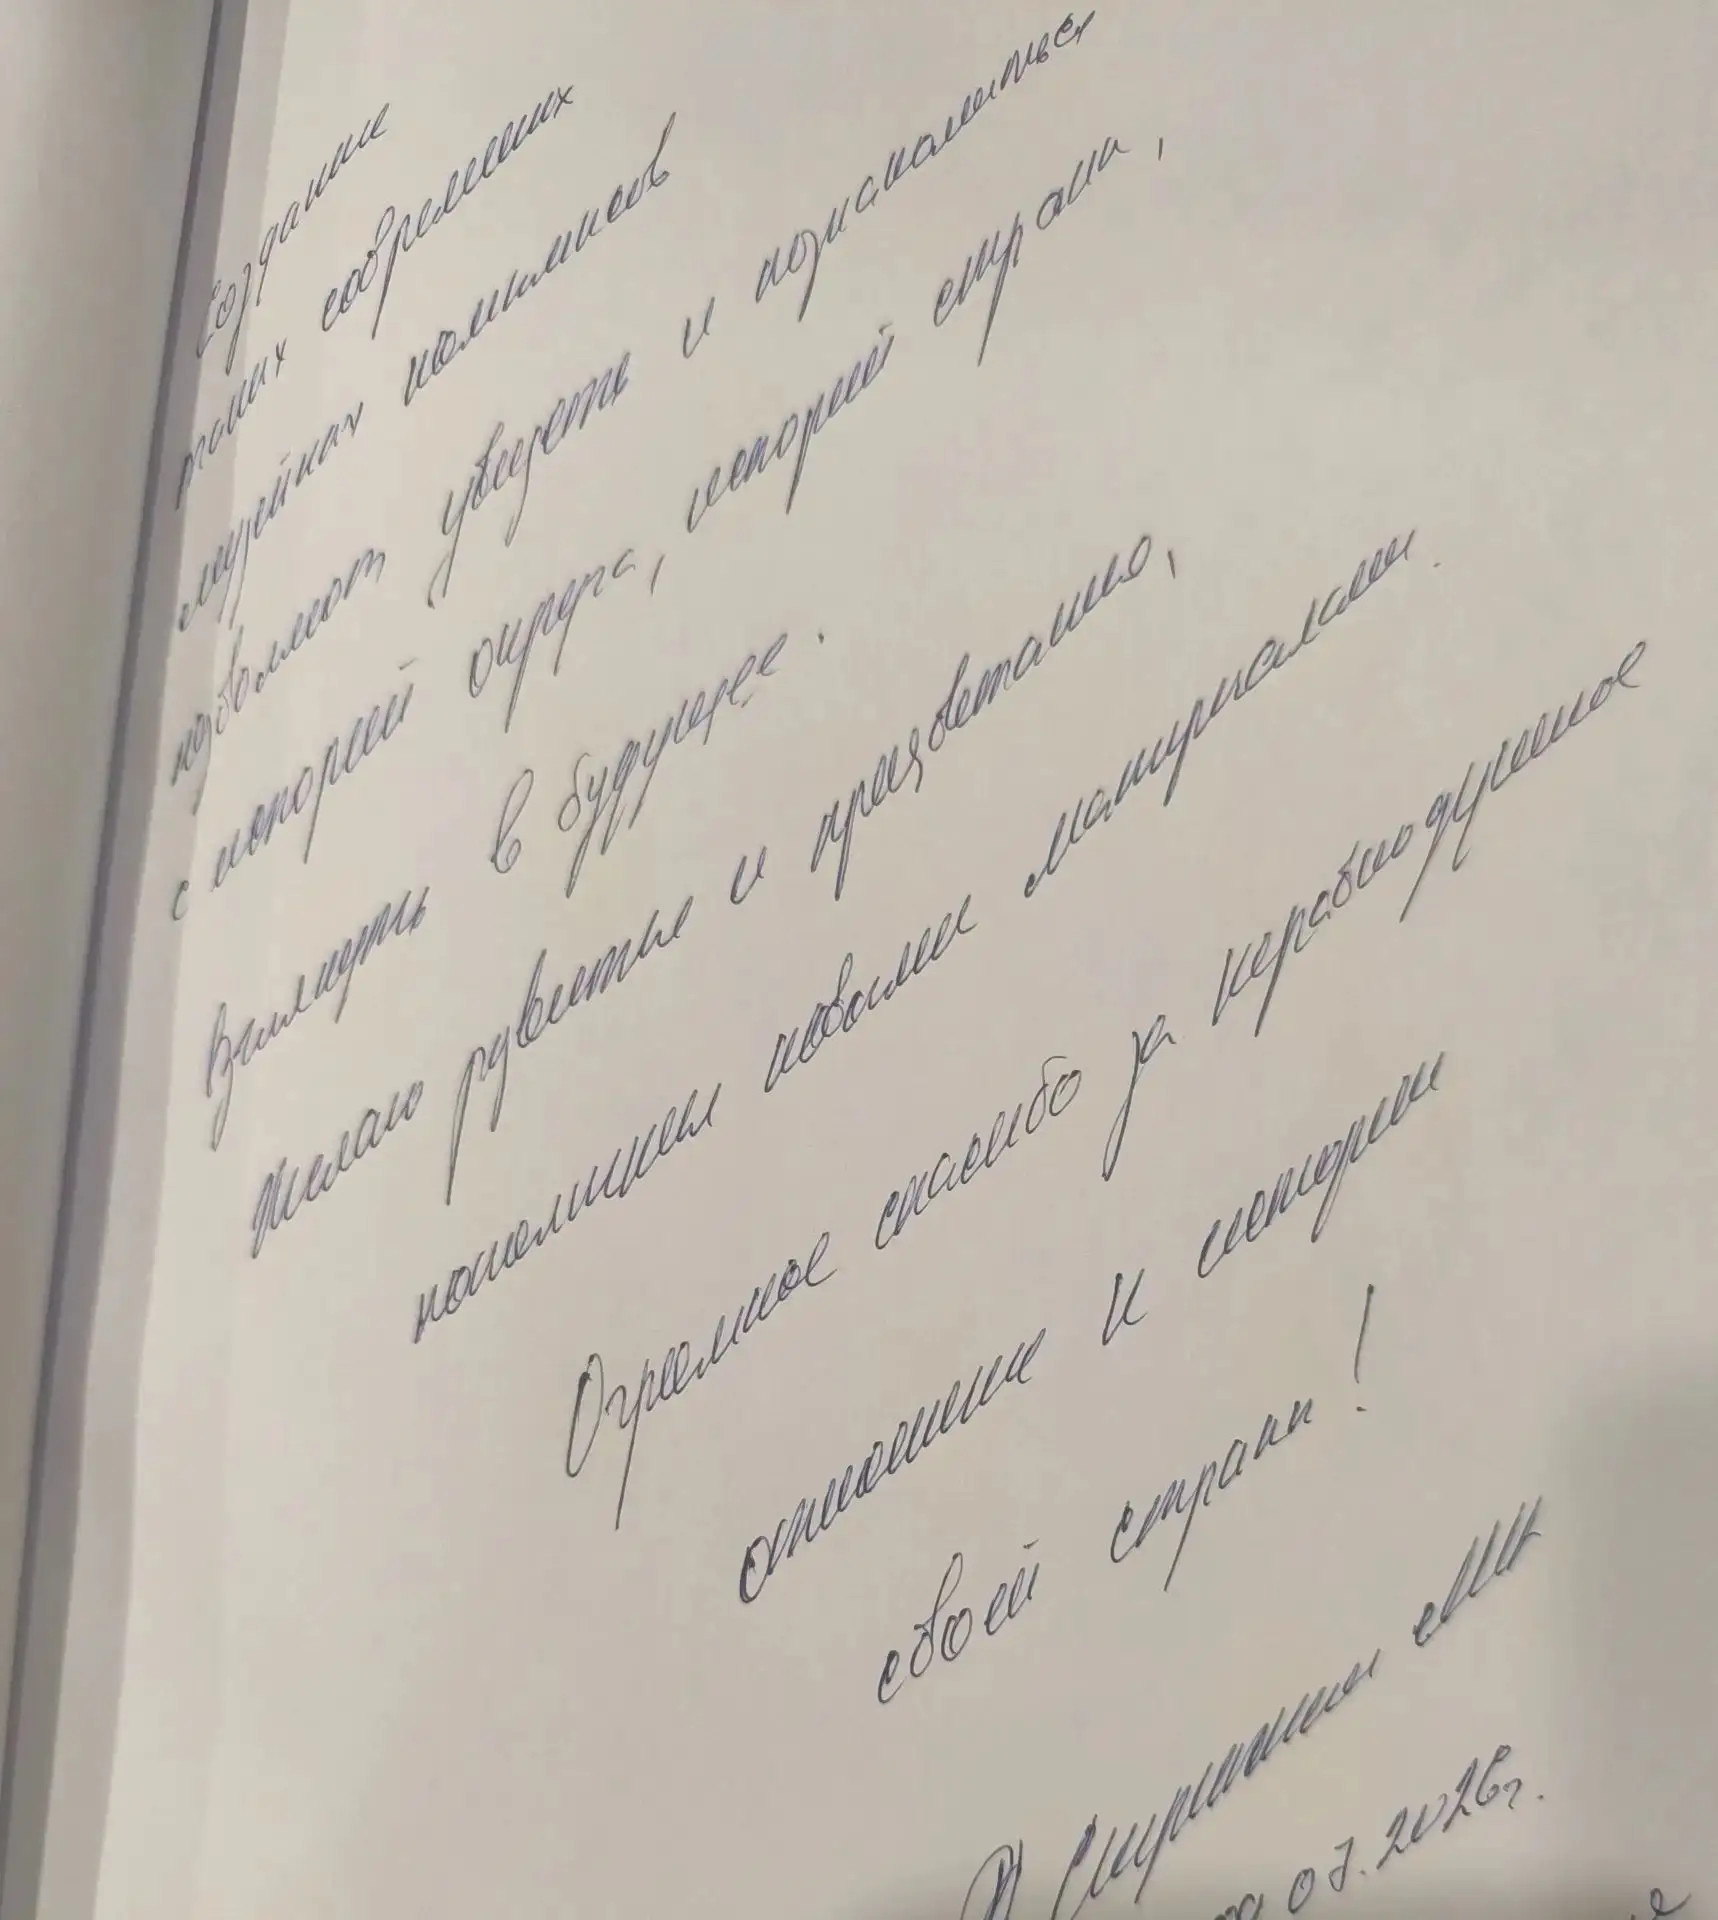 Создание
таких современных
музейных комплексов
позволяют увидеть и познакомиться
с историей округа, историей страны,
взглянуть в будущее.
Желаю развития и процветанию,
пополнения новыми материалами.
Огромное спасибо за неравнодушное
отношение к истории
своей страны!
07.2026г.